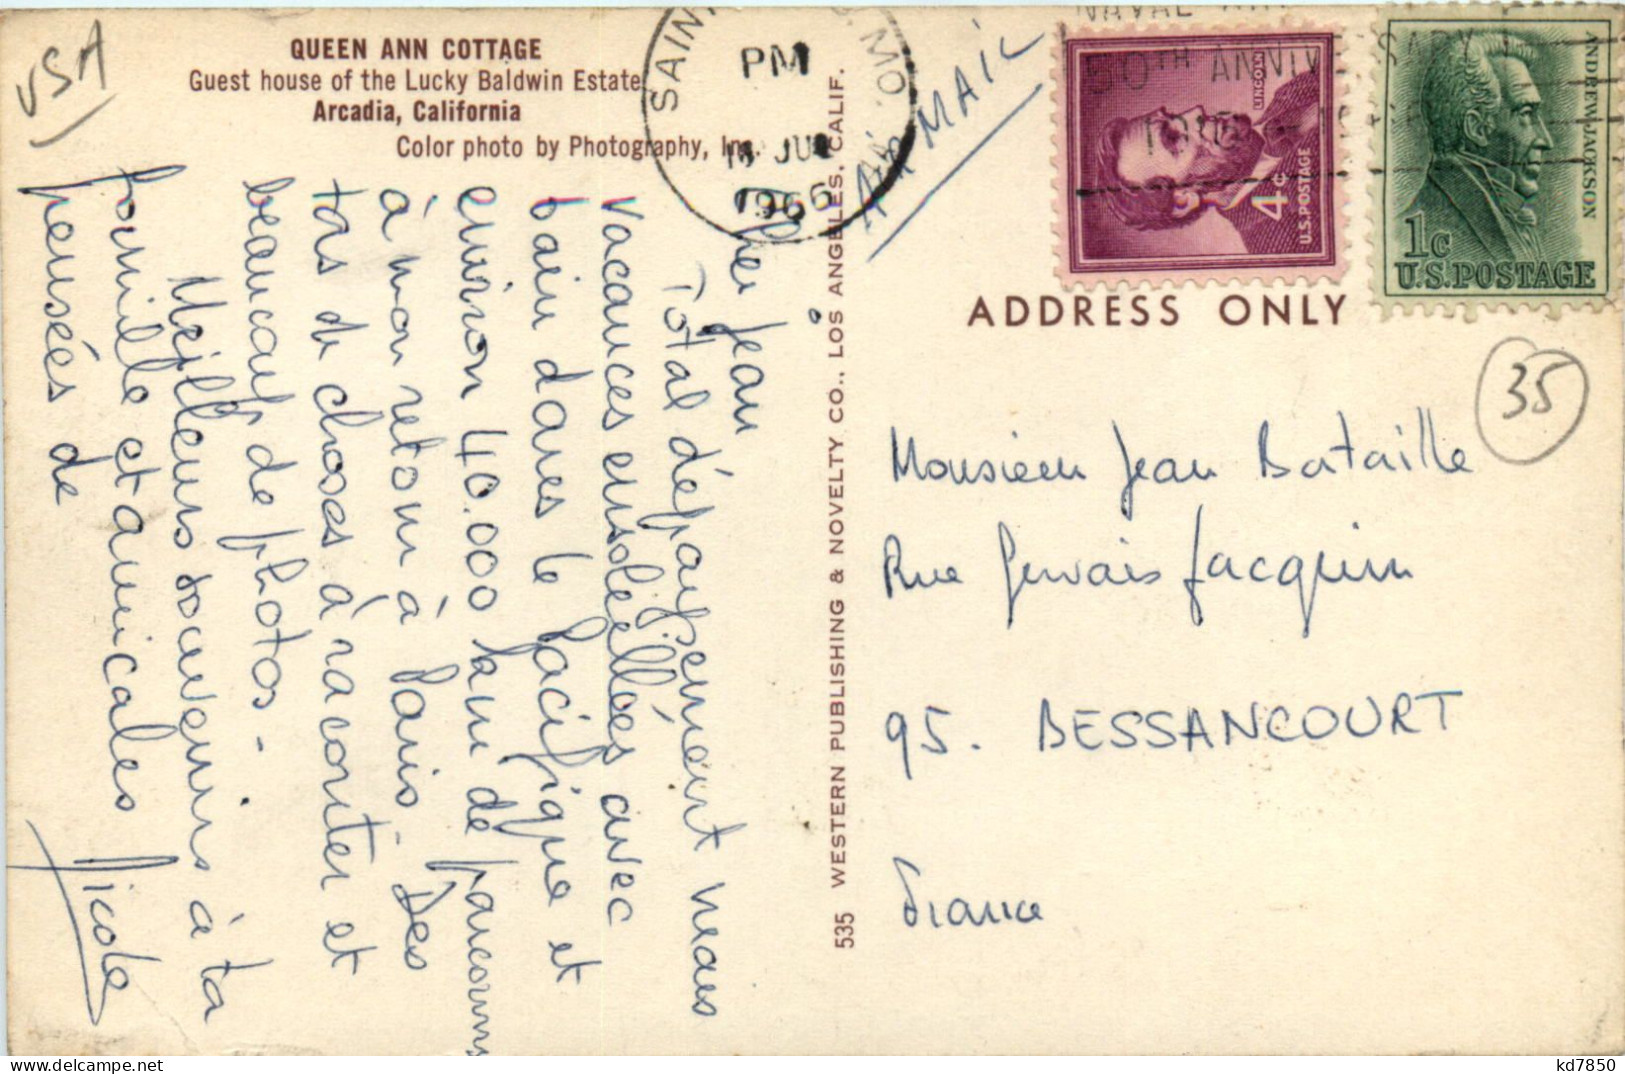 USA
QUEEN ANN COTTAGE
Guest house of the Lucky Baldwin Estate
Arcadia, California
Color photo by Photography, Inc.
SAIN MO.
PM
JUL
1966
AIR MAIL
NAVAL AIR
50TH ANNIVERSARY
LINCOLN
4c
U.S. POSTAGE
ANDREW JACKSON
1c
U.S. POSTAGE
ADDRESS ONLY
35
Cher Jean
Total dépaysement mais
Vacances ensoleillées avec
bain dans le Pacifique et
environ 40.000 km de parcourus
à mon retour à Paris. Des
tas de choses à raconter et
beaucoup de photos.
Meilleurs souvenirs à ta
famille et amicales
pensées de
Nicole
535 WESTERN PUBLISHING & NOVELTY CO., LOS ANGELES, CALIF.
Monsieur Jean Bataille
Rue Gervais Jacquin
95. BESSANCOURT
France
kd7850